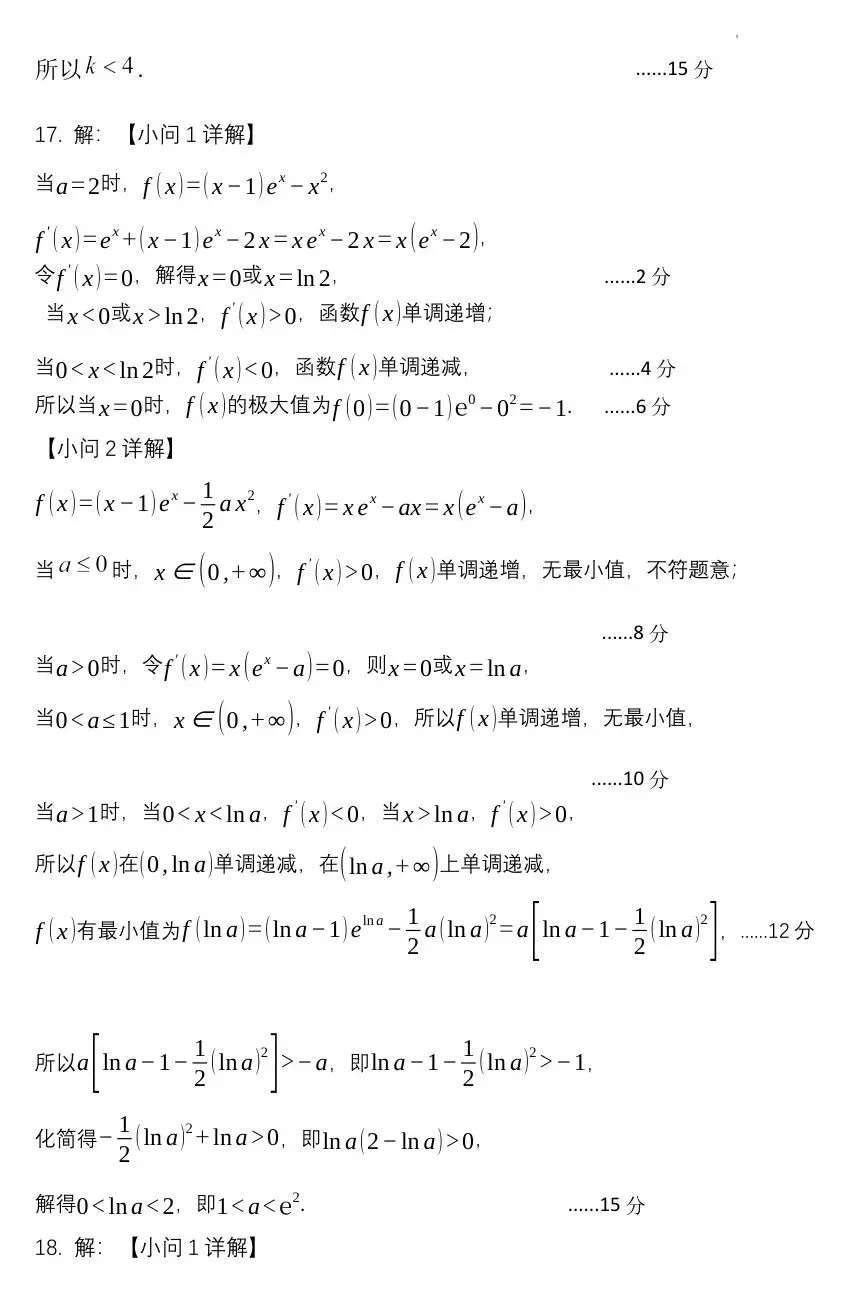 所以 k < 4 . ......15 分
17. 解：【小问 1 详解】
当a=2时，f(x)=(x−1)eˣ−x²，
f′(x)=eˣ+(x−1)eˣ−2x=xeˣ−2x=x(eˣ−2)，
令f′(x)=0，解得x=0或x=ln2， ......2 分
当x<0或x>ln2，f′(x)>0，函数f(x)单调递增；
当0<x<ln2时，f′(x)<0，函数f(x)单调递减， ......4 分
所以当x=0时，f(x)的极大值为f(0)=(0−1)e⁰−0²=−1. ......6 分
【小问 2 详解】
f(x)=(x−1)eˣ−1/2ax²，f′(x)=xeˣ−ax=x(eˣ−a)，
当 a≤0 时，x∈(0,+∞)，f′(x)>0，f(x)单调递增，无最小值，不符题意；
......8 分
当a>0时，令f′(x)=x(eˣ−a)=0，则x=0或x=lna，
当0<a≤1时，x∈(0,+∞)，f′(x)>0，所以f(x)单调递增，无最小值，
......10 分
当a>1时，当0<x<lna，f′(x)<0，当x>lna，f′(x)>0，
所以f(x)在(0,lna)单调递减，在(lna,+∞)上单调递减，
f(x)有最小值为f(lna)=(lna−1)e^{lna}−1/2a(lna)²=a[lna−1−1/2(lna)²]，......12 分
所以a[lna−1−1/2(lna)²]>−a，即lna−1−1/2(lna)²>−1，
化简得−1/2(lna)²+lna>0，即lna(2−lna)>0，
解得0<lna<2，即1<a<e². ......15 分
18. 解：【小问 1 详解】